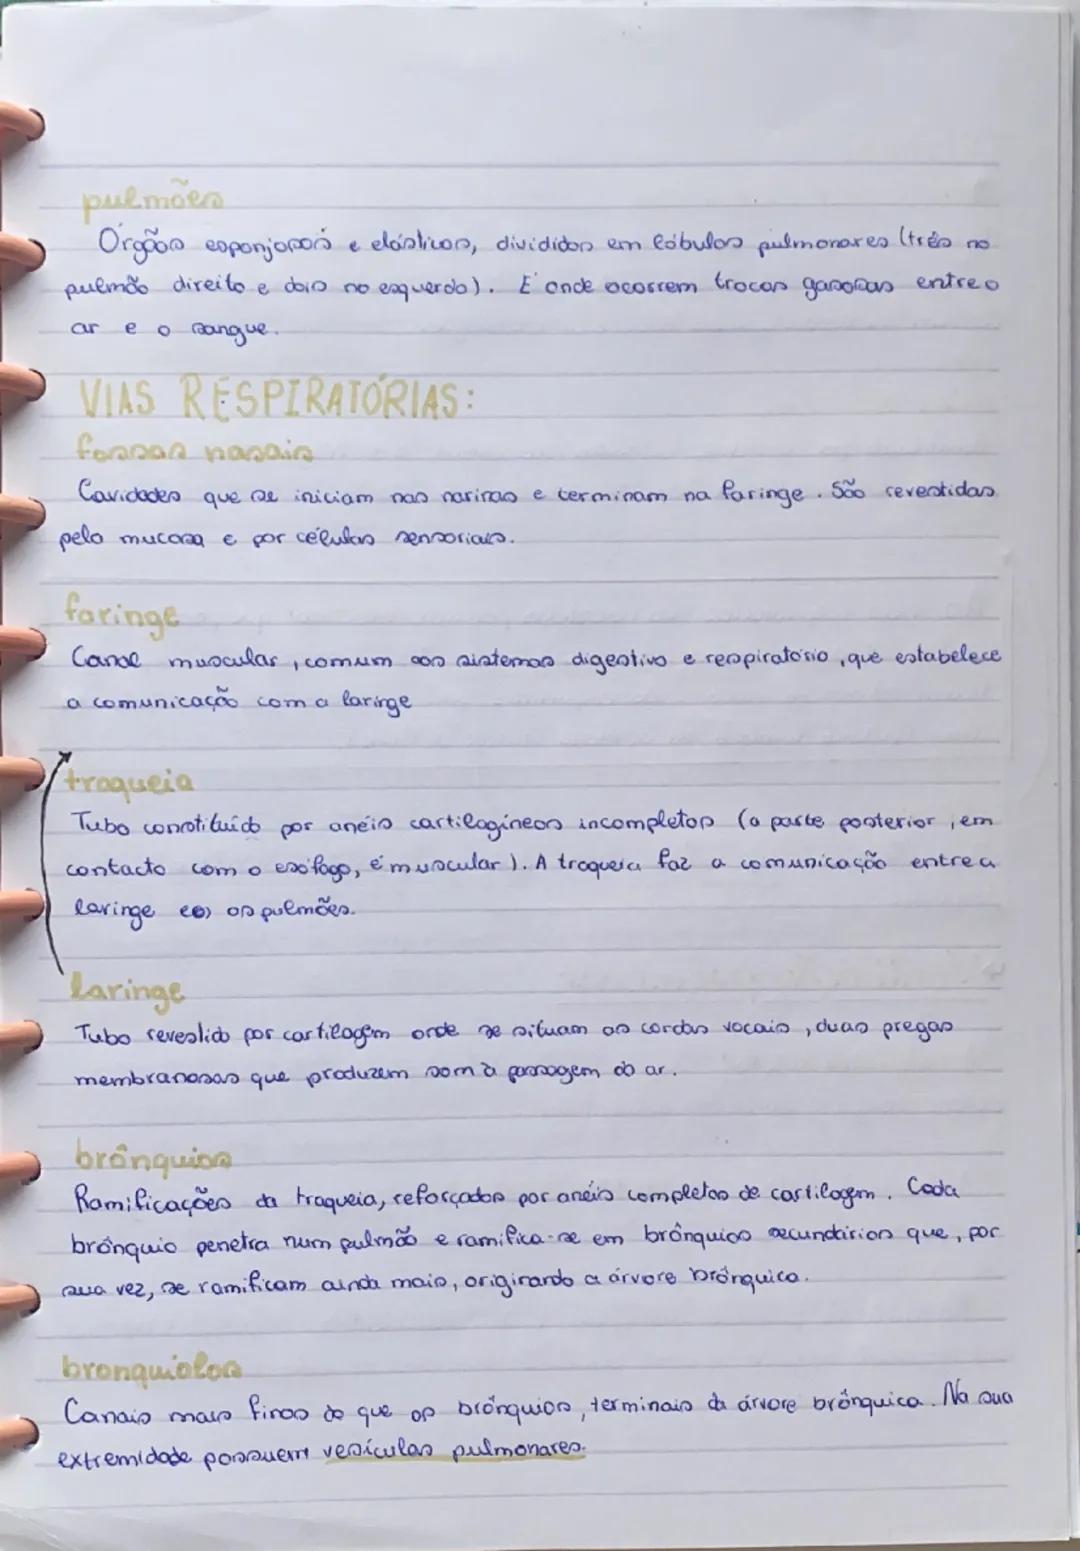 pulmões
Órgãos esponjosos e elásticos, divididos em lóbulos pulmonares (três no
pulmão direito e dois no esquerdo). É onde ocorrem trocas gasosas entre o
ar e o sangue.
VIAS RESPIRATÓRIAS:
fossas nasais
Cavidades que se iniciam nas narinas e terminam na faringe. São revestidas
pela mucosa e por células sensoriais.
faringe
Canal muscular, comum aos sistemas digestivo e respiratório, que estabelece
a comunicação com a laringe
traqueia
Tubo constituído por anéis cartilagíneos incompletos (a parte posterior, em
contacto com o esófago, é muscular). A traqueia faz a comunicação entre a
laringe e os pulmões.
laringe
Tubo revestido por cartilagem onde se situam as cordas vocais, duas pregas
membranosas que produzem som à passagem do ar.
brônquios
Ramificações da traqueia, reforçados por anéis completos de cartilagem. Cada
brônquio penetra num pulmão e ramifica-se em brônquios secundários que, por
sua vez, se ramificam ainda mais, originando a árvore brônquica.
bronquíolos
Canais mais finos do que os brônquios, terminais da árvore brônquica. Na sua
extremidade possuem vesículas pulmonares.